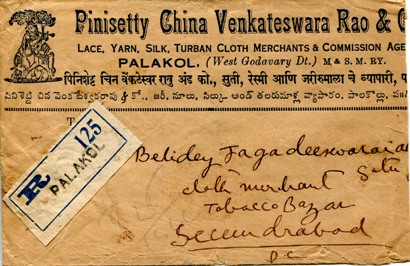 Pinisetty China Venkateswara Rao & C
LACE, YARN, SILK, TURBAN CLOTH MERCHANTS & COMMISSION AGE
PALAKOL, (West Godavary Dt.) M & S. M. RY.
पिनिशेट्टि चिन वेंकटेस्वर रावु अंड को., सुती, रेस्मी आणि जरीरुमाला चे व्यापारी, प
పినిశెట్టి చిన వెంకటేశ్వరరావు & కో., జరీ, నూలు, సిల్కు అండ్ తలరుమాళ్ల వ్యాపారం, పాలకొల్లు,
T
R 125
PALAKOL
Belidey Jagadeeswaraiah
cloth merchant
Tobacco Bazar
Secundrabad
D.C.